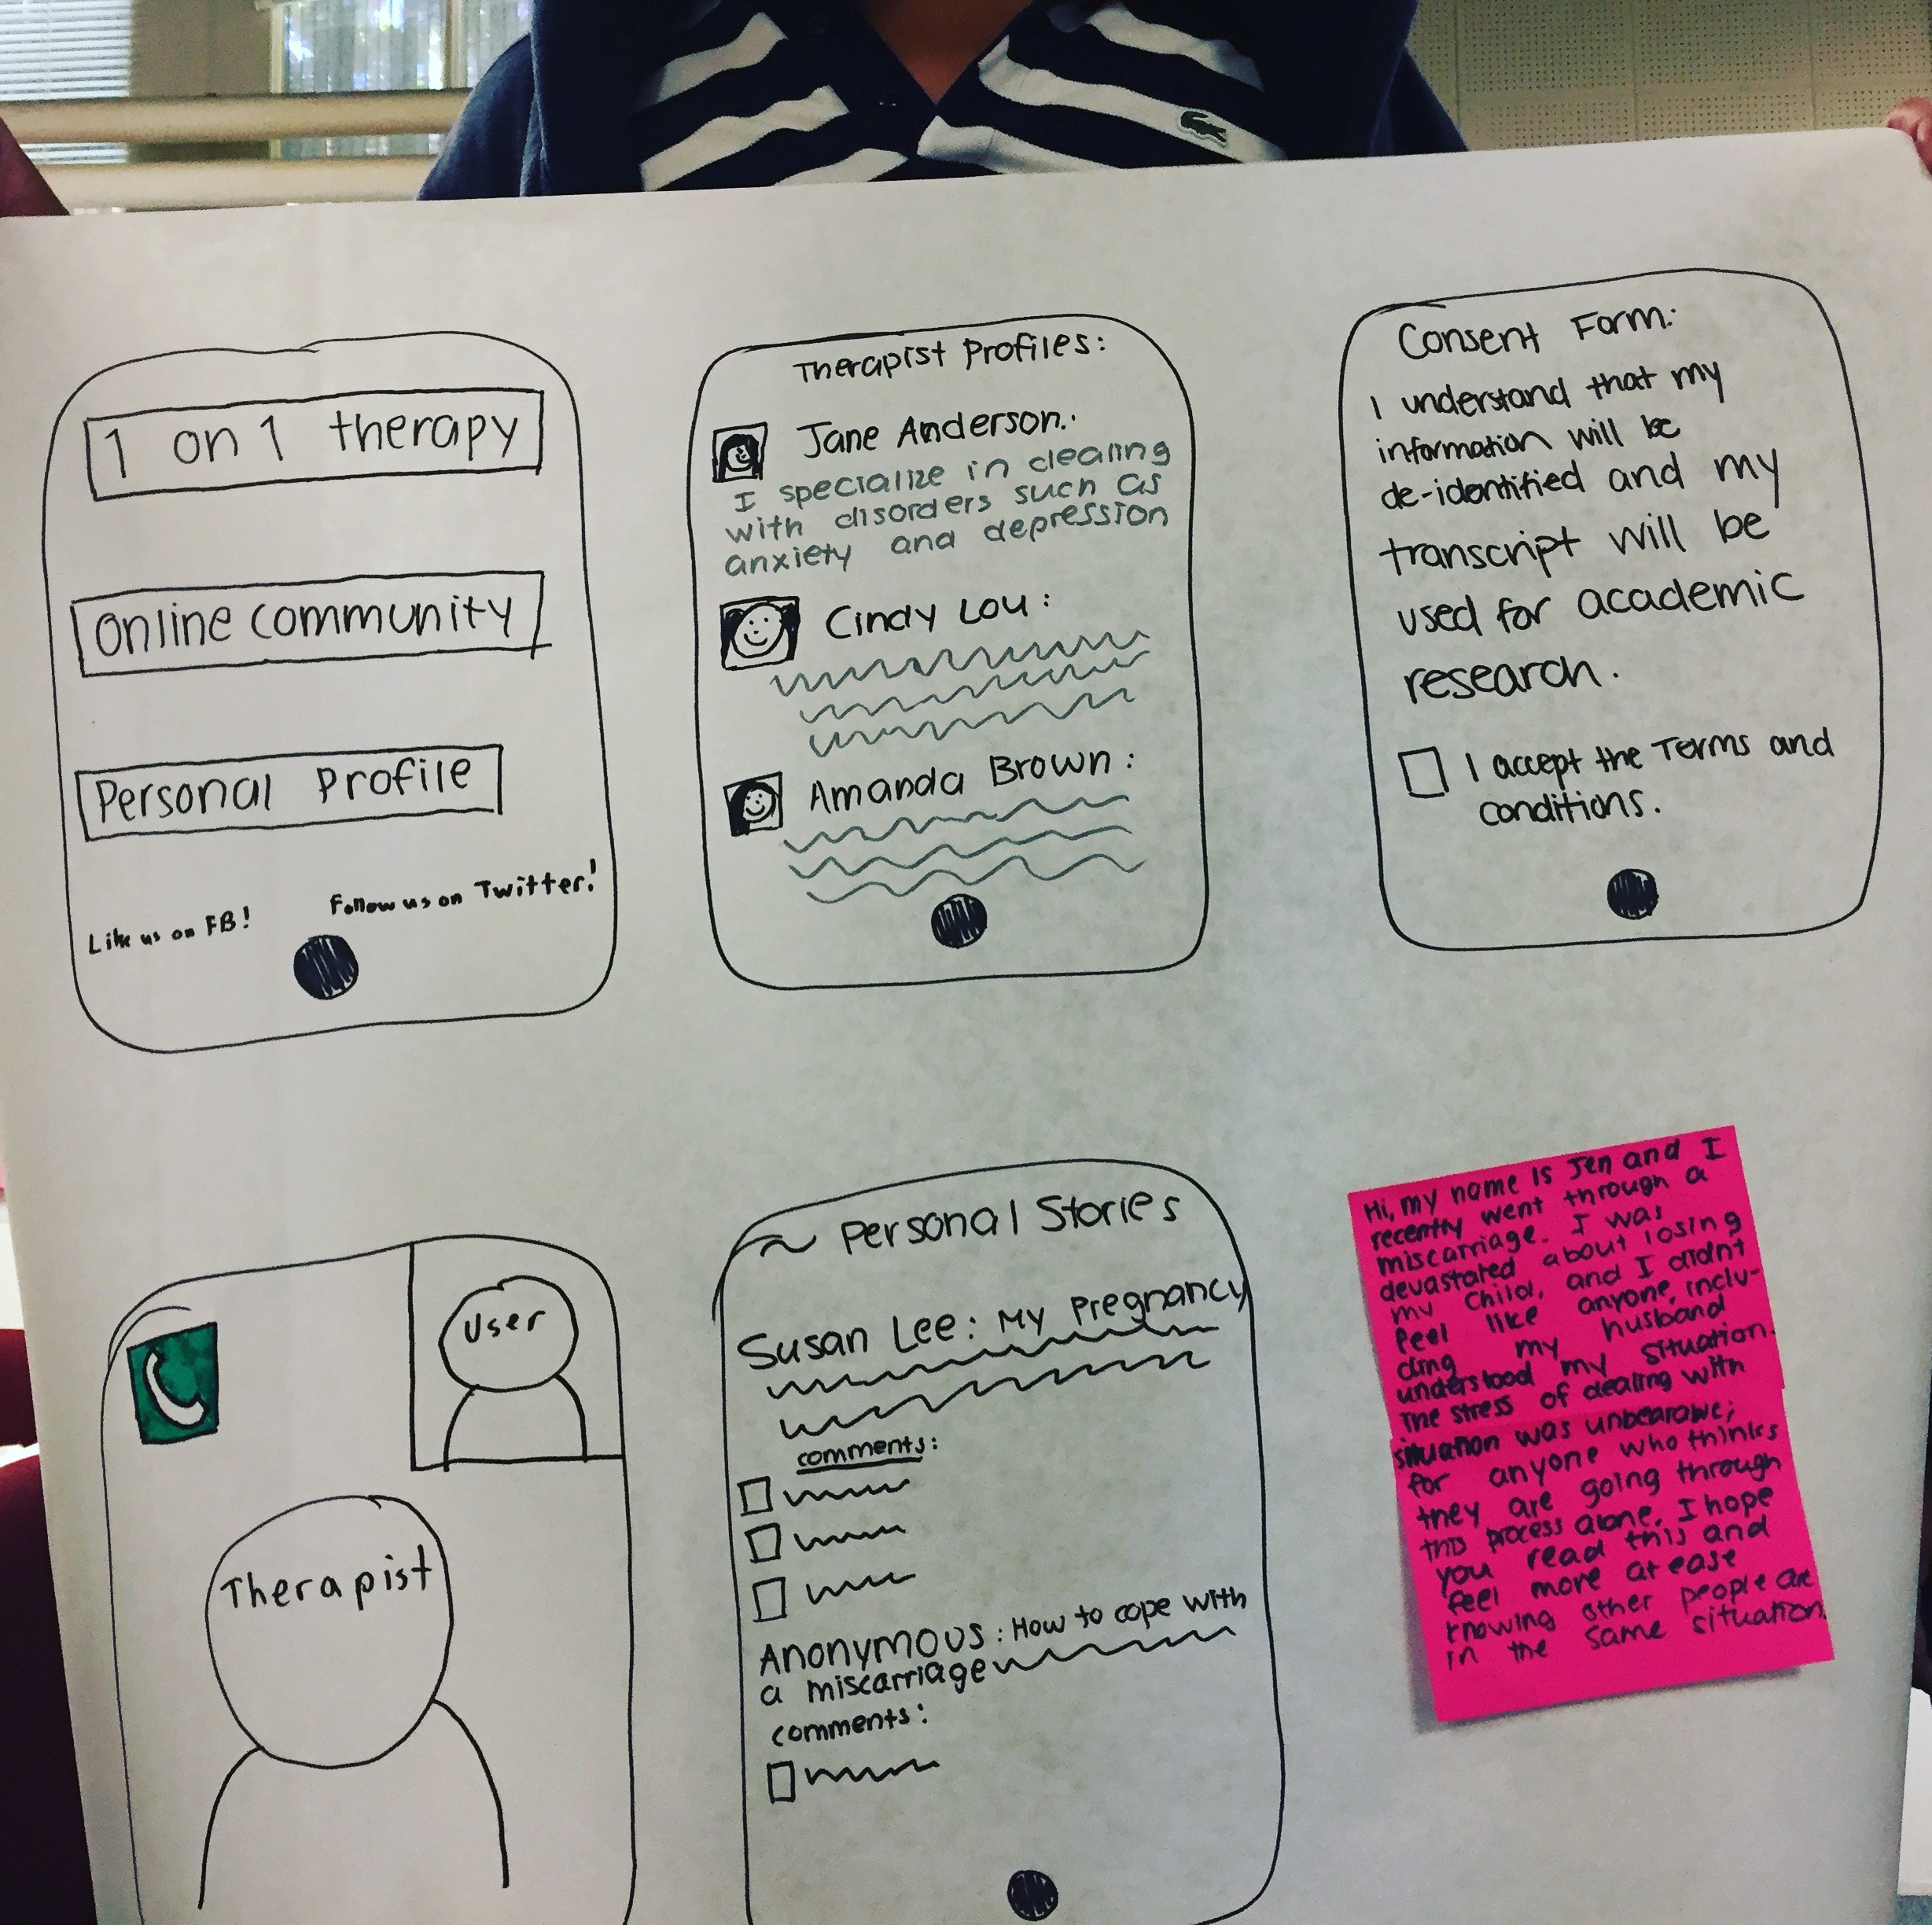 1 on 1 therapy
Online community
Personal Profile
Like us on FB!
Follow us on Twitter!
Therapist Profiles:
Jane Anderson:
I specialize in dealing
with disorders such as
anxiety and depression
Cindy Lou:
Amanda Brown:
Consent Form:
I understand that my
information will be
de-identified and my
transcript will be
used for academic
research.
I accept the Terms and
conditions.
User
Therapist
Personal Stories
Susan Lee: My Pregnancy
comments:
Anonymous: How to cope with
a miscarriage
comments:
Hi, my name is Jen and I
recently went through a
miscarriage. I was
devastated about losing
my child, and I didnt
feel like anyone, inclu-
ding my husband
understood my situation.
The stress of dealing with
situation was unbearable;
for anyone who thinks
they are going through
this process alone, I hope
you read this and
feel more at ease
knowing other people are
in the same situation.